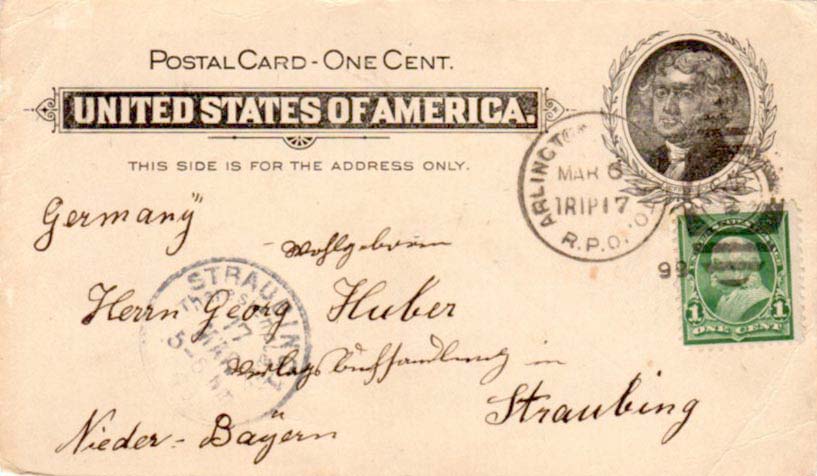 POSTAL CARD - ONE CENT.
UNITED STATES OF AMERICA.
THIS SIDE IS FOR THE ADDRESS ONLY.
ARLINGTO
MAR 6
TRIP 17
R.P.O.
99
ONE CENT
1 1
Germany"
Wohlgeboren
STRAUBING
Herrn Georg Huber
17
5-6
Verlagsbuchhandlung in
Straubing
Nieder-Bayern